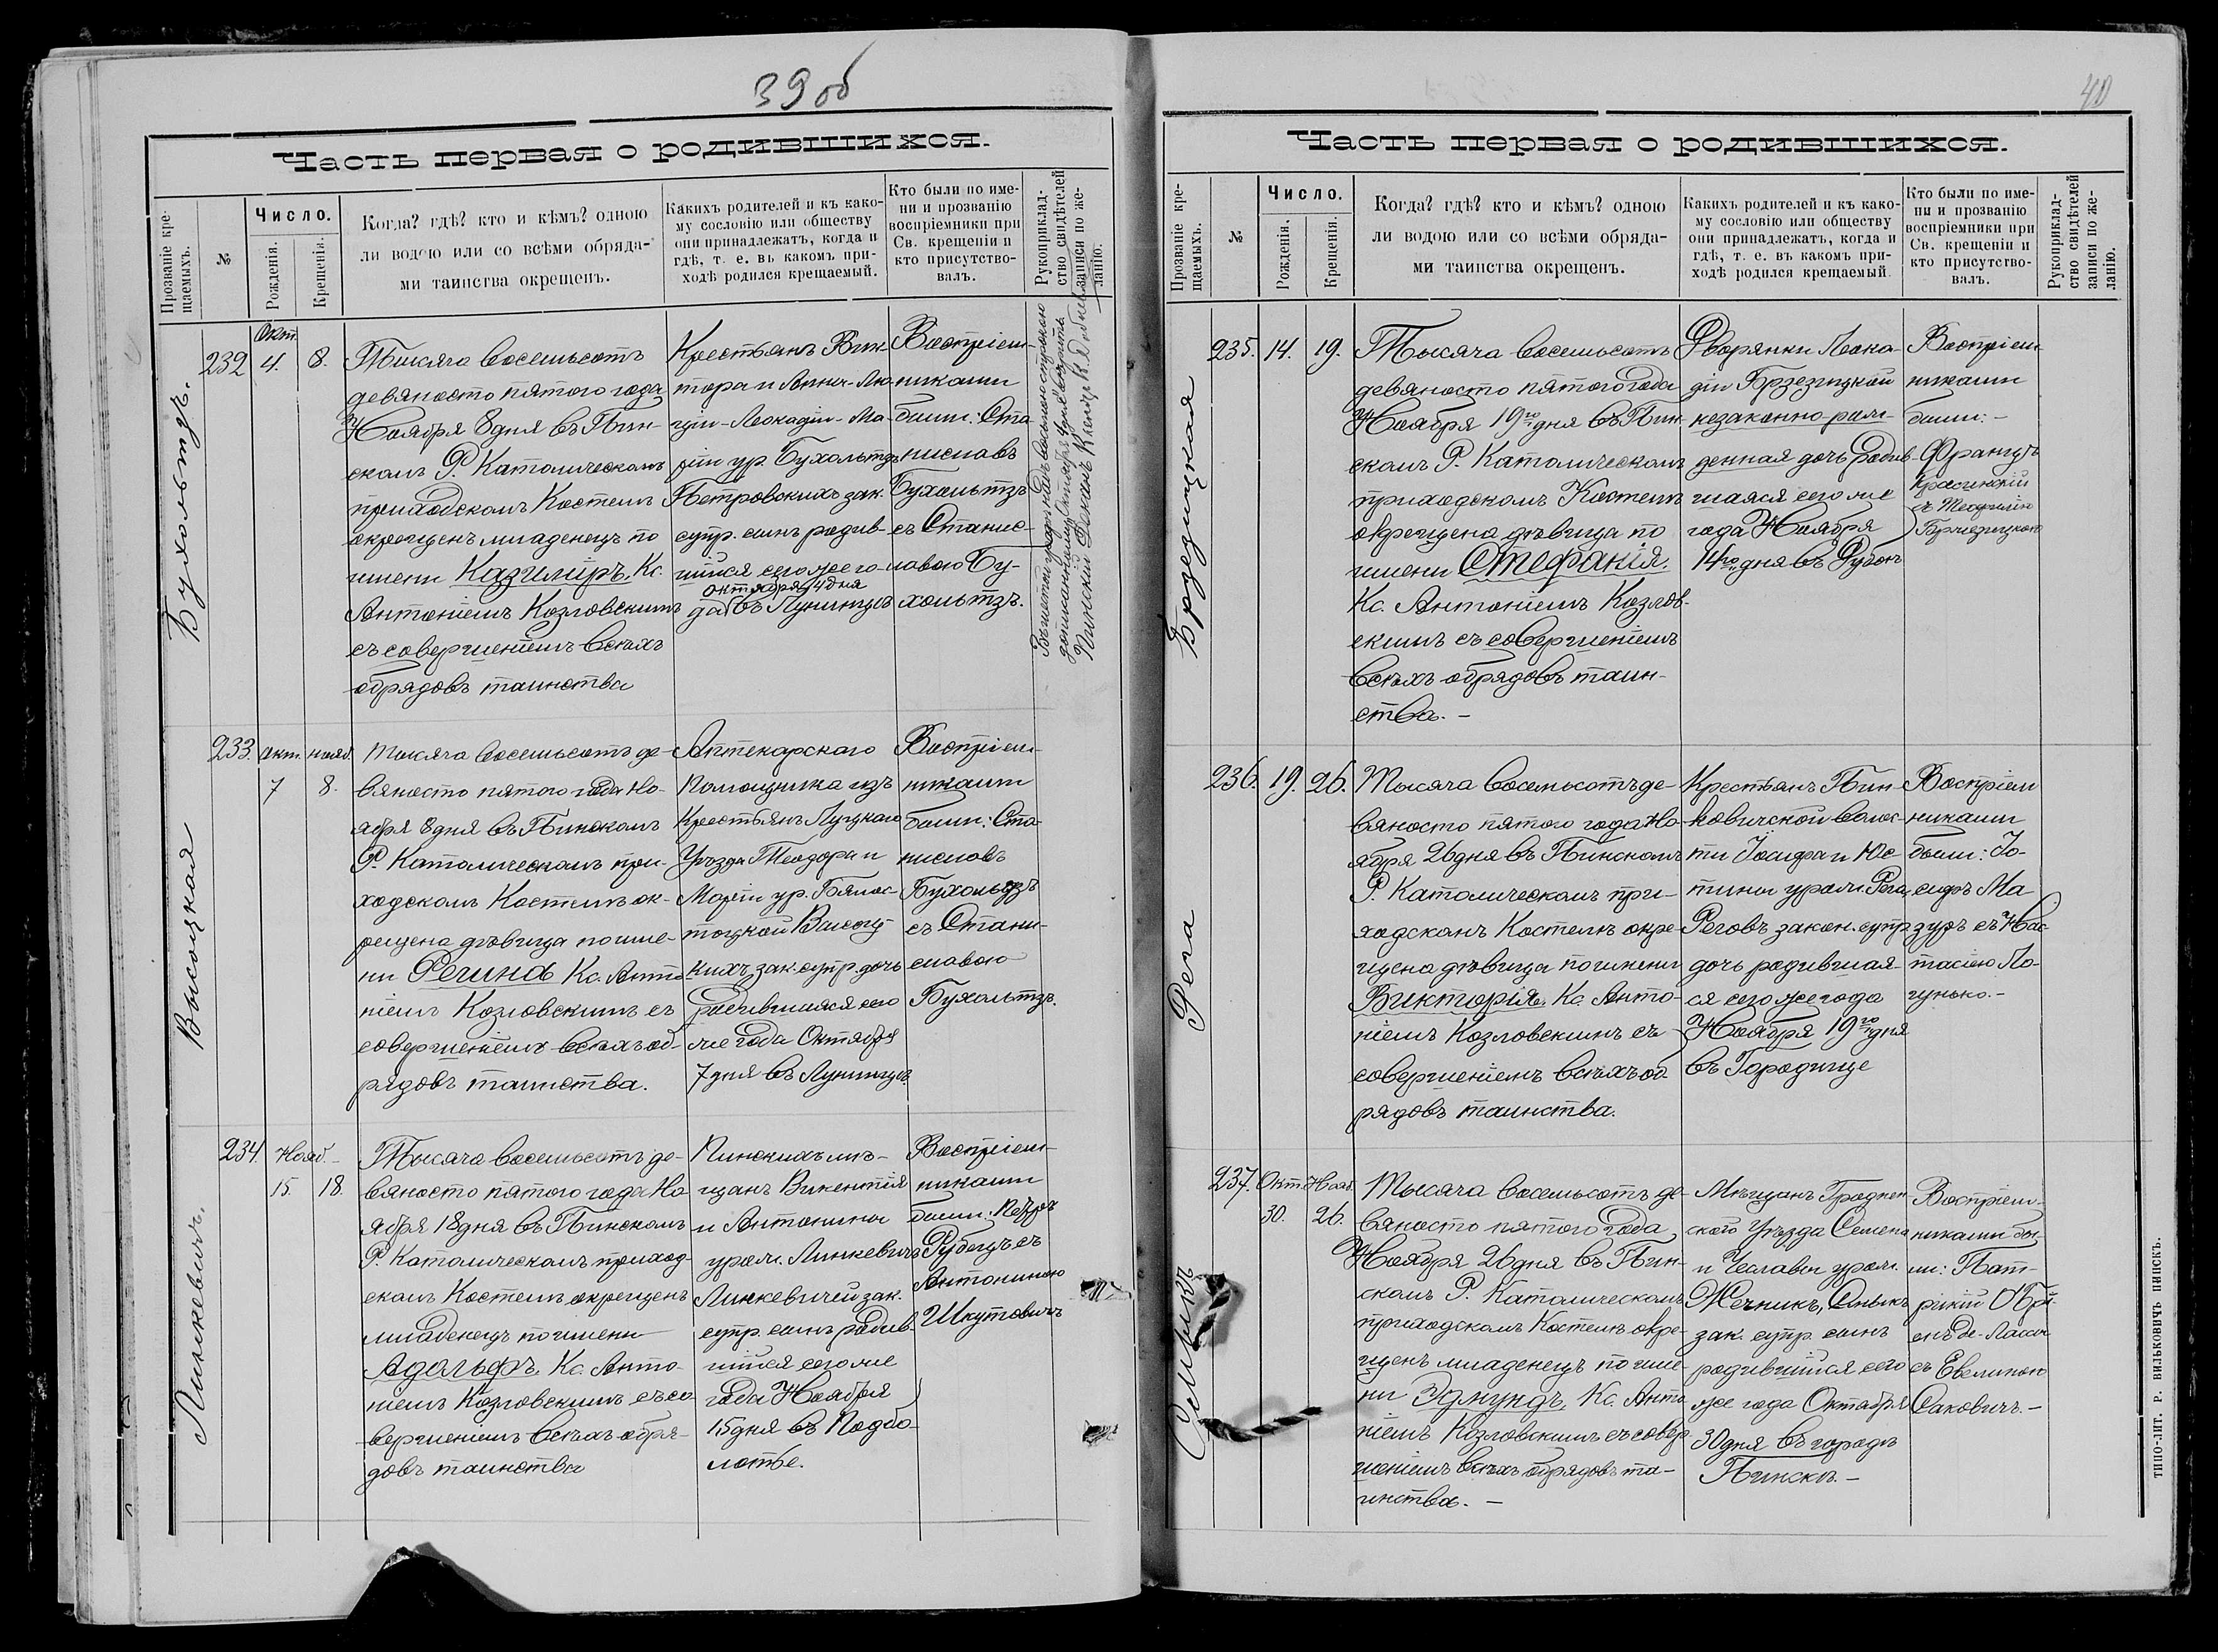 39 об
Часть первая о родившихся.
Прозваніе кре-
щаемыхъ.
№
Число.
Рожденія.
Крещенія.
Когда? гдѣ? кто и кѣмъ? одною
ли водою или со всѣми обряда-
ми таинства окрещенъ.
Какихъ родителей и къ како-
му сословію или обществу
они принадлежатъ, когда и
гдѣ, т. е. въ какомъ при-
ходѣ родился крещаемый.
Кто были по име-
ни и прозванію
воспріемники при
Св. крещеніи и
кто присутство-
валъ.
Рукоприклад-
ство свидѣтелей
записи по же-
ланію.
Бухольтцъ.
232
Окт.
4.
8.
Тысяча восемьсотъ
девяносто пятого года
Ноября 8 дня въ Пин-
скомъ Р. Католическомъ
приходскомъ Костелѣ
окрещенъ младенецъ по
имени Казиміръ. Кс.
Антоніемъ Козловскимъ
съ совершеніемъ всѣхъ
обрядовъ таинства
Крестьянъ Вик-
тора и Анны-Лю-
ціи-Леокадіи-Ма-
ріи ур. Бухольтцъ
Петровскихъ зак.
супр. сынъ родив-
шійся сего же го-
октября 4 дня
да въ Лунинцѣ
Воспріем-
никами
были: Ста
ниславъ
Бухольтзъ
съ Станис-
лавою Бу-
хольтзъ.
Пинскій Деканъ
Высоцкая
233.
Окт.
нояб.
7
8.
Тысяча восемьсотъ де-
вяносто пятого года Но-
ября 8 дня въ Пинскомъ
Р. Католическомъ при-
ходскомъ Костелѣ ок-
рещена дѣвица по име-
ни Регина Кс. Анто
ніемъ Козловскимъ съ
совершеніемъ всѣхъ об-
рядовъ таинства.
Аптекарскаго
Помощника изъ
Крестьянъ Луцкаго
Уѣзда Теодора и
Маріи ур. Бялос-
тоцкой Высоц-
кихъ зак. супр. дочь
родившаяся сего
же года Октября
7 дня въ Лунинцѣ
Воспріем-
никами
были: Ста-
ниславъ
Бухольцзъ
съ Стани-
славою
Бухольтзъ.
Линкевичъ.
234.
Нояб.
15.
18.
Тысяча восемьсотъ де-
вяносто пятого года Но
ября 18 дня въ Пинскомъ
Р. Католическомъ приход-
скомъ Костелѣ окрещенъ
младенецъ по имени
Адольфъ. Кс. Анто-
ніемъ Козловскимъ съ со-
вершеніемъ всѣхъ обря-
довъ таинства
Пинскихъ мѣ-
щанъ Викентія
и Антонины
урож. Линкевичъ
Линкевичей зак.
супр. сынъ родив-
шійся сего же
года Ноября
15 дня въ Подбо-
лотье.
Воспріем-
никами
были: Петръ
Рубецъ съ
Антониною
Шкутовичъ
40
Часть первая о родившихся.
Прозваніе кре-
щаемыхъ.
№
Число.
Рожденія.
Крещенія.
Когда? гдѣ? кто и кѣмъ? одною
ли водою или со всѣми обряда-
ми таинства окрещенъ.
Какихъ родителей и къ како-
му сословію или обществу
они принадлежатъ, когда и
гдѣ, т. е. въ какомъ при-
ходѣ родился крещаемый.
Кто были по име-
ни и прозванію
воспріемники при
Св. крещеніи и
кто присутство-
валъ.
Рукоприклад-
ство свидѣтелей
записи по же-
ланію.
Брзезицкая
235.
14.
19.
Тысяча восемьсотъ
девяносто пятого года
Ноября 19го дня въ Пин-
скомъ Р. Католическомъ
приходскомъ Костелѣ
окрещена дѣвица по
имени Стефанія.
Кс. Антоніемъ Козлов-
скимъ съ совершеніемъ
всѣхъ обрядовъ таин-
ства. -
Дворянки Леока-
діи Брзезицкой
незаконно-рож-
денная дочь родив-
шаяся сего же
года Ноября
14го дня въ Дубоѣ
Воспріем
никами
были: -
Францъ
Красинскій
съ Теофиліею
Брзезицкою
Рега
236.
19.
26.
Тысяча восемьсотъ де-
вяносто пятого года Но-
ября 26 дня въ Пинскомъ
Р. Католическомъ при-
ходскомъ Костелѣ окре-
щена дѣвица по имени
Викторія. Кс. Анто-
ніемъ Козловскимъ съ
совершеніемъ всѣхъ об-
рядовъ таинства.
Крестьянъ Пин-
ковичской волос-
ти Іосифа и Юс-
тины урож. Рега,
Реговъ закон. супр.
дочь родившая-
ся сего же года
Ноября 19го дня
въ Городище
Воспріем
никами
были: Іо-
сифъ Ма
зуръ съ Нас
тасіею Ло-
гунько. -
Семыкъ
237.
Окт.
Нояб.
30.
26.
Тысяча восемьсотъ де-
вяносто пятого года
Ноября 26 дня въ Пин-
скомъ Р. Католическомъ
приходскомъ Костелѣ окре-
щенъ младенецъ по име-
ни Эдмундъ. Кс. Анто
ніемъ Козловскимъ съ совер
шеніемъ всѣхъ обрядовъ та-
инства. -
Мѣщанъ Гроднен
скаго Уѣзда Семена
и Чеславы урож.
зак. супр. сынъ
родившійся сего
же года Октября
30 дня въ городѣ
Пинскѣ. -
Воспріем-
никами бы-
ли: Пат-
рикій О'Брі-
енъ де-Ласси
съ Евелиною
Саковичъ. -
ТИПО-ЛИТ. Р. ВИЛЬКОВИЧЪ ПИНСКЪ.